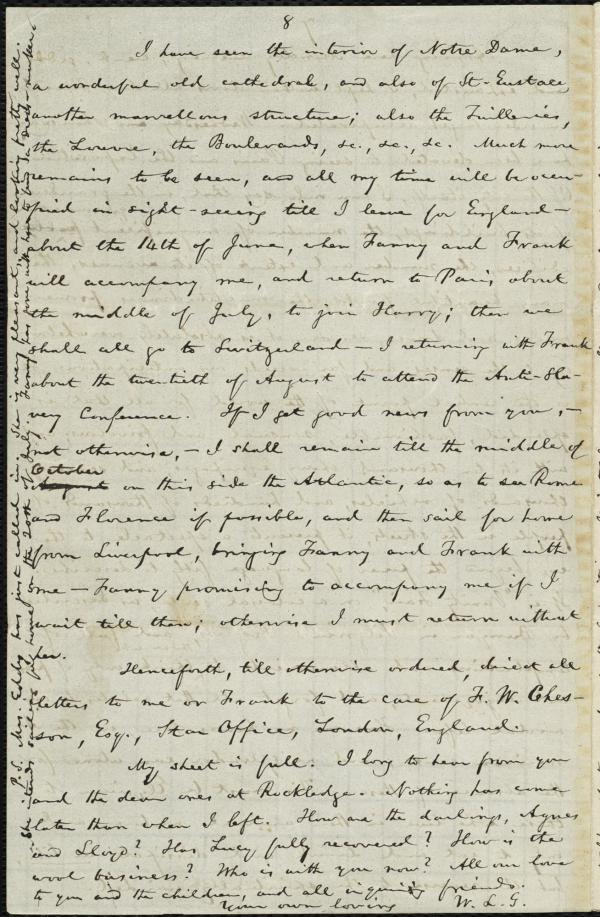 8
I have seen the interior of Notre Dame,
a wonderful old cathedral, and also of St. Eustace,
another marvellous structure; also the Tuilleries,
the Louvre, the Boulevards, &c., &c., &c. Much more
remains to be seen, and all my time will be occu-
pied in sight-seeing till I leave for England—
about the 14th of June, when Fanny and Frank
will accompany me, and return to Paris about
the middle of July, to join Harry; then we
shall all go to Switzerland — I returning with Frank
about the twentieth of August to attend the Anti-Sla-
very Conference. If I get good news from you, —
not otherwise, — I shall remain till the middle of
October
August on this side the Atlantic, so as to see Rome
and Florence if possible, and then sail for home
from Liverpool, bringing Fanny and Frank with
me — Fanny promising to accompany me if I
wait till then; otherwise I must return without
her.
Henceforth, till otherwise ordered, direct all
letters to me or Frank to the care of F. W. Ches-
son, Esq., Star Office, London, England.
My sheet is full. I long to hear from you
and the dear ones at Rockledge. Nothing has come
later than when I left. How are the darlings, Agnes
and Lloyd? Has Lucy fully recovered? How is the
wool business? Who is with you now? All our love
to you and the children, and all inquiring friends.
Your own loving W. L. G.
P.S. Mrs. Eddy has just called in. She is very pleasant, and looking pretty well.
She intends sailing for home on the 20th of July. Fanny has gone with her to